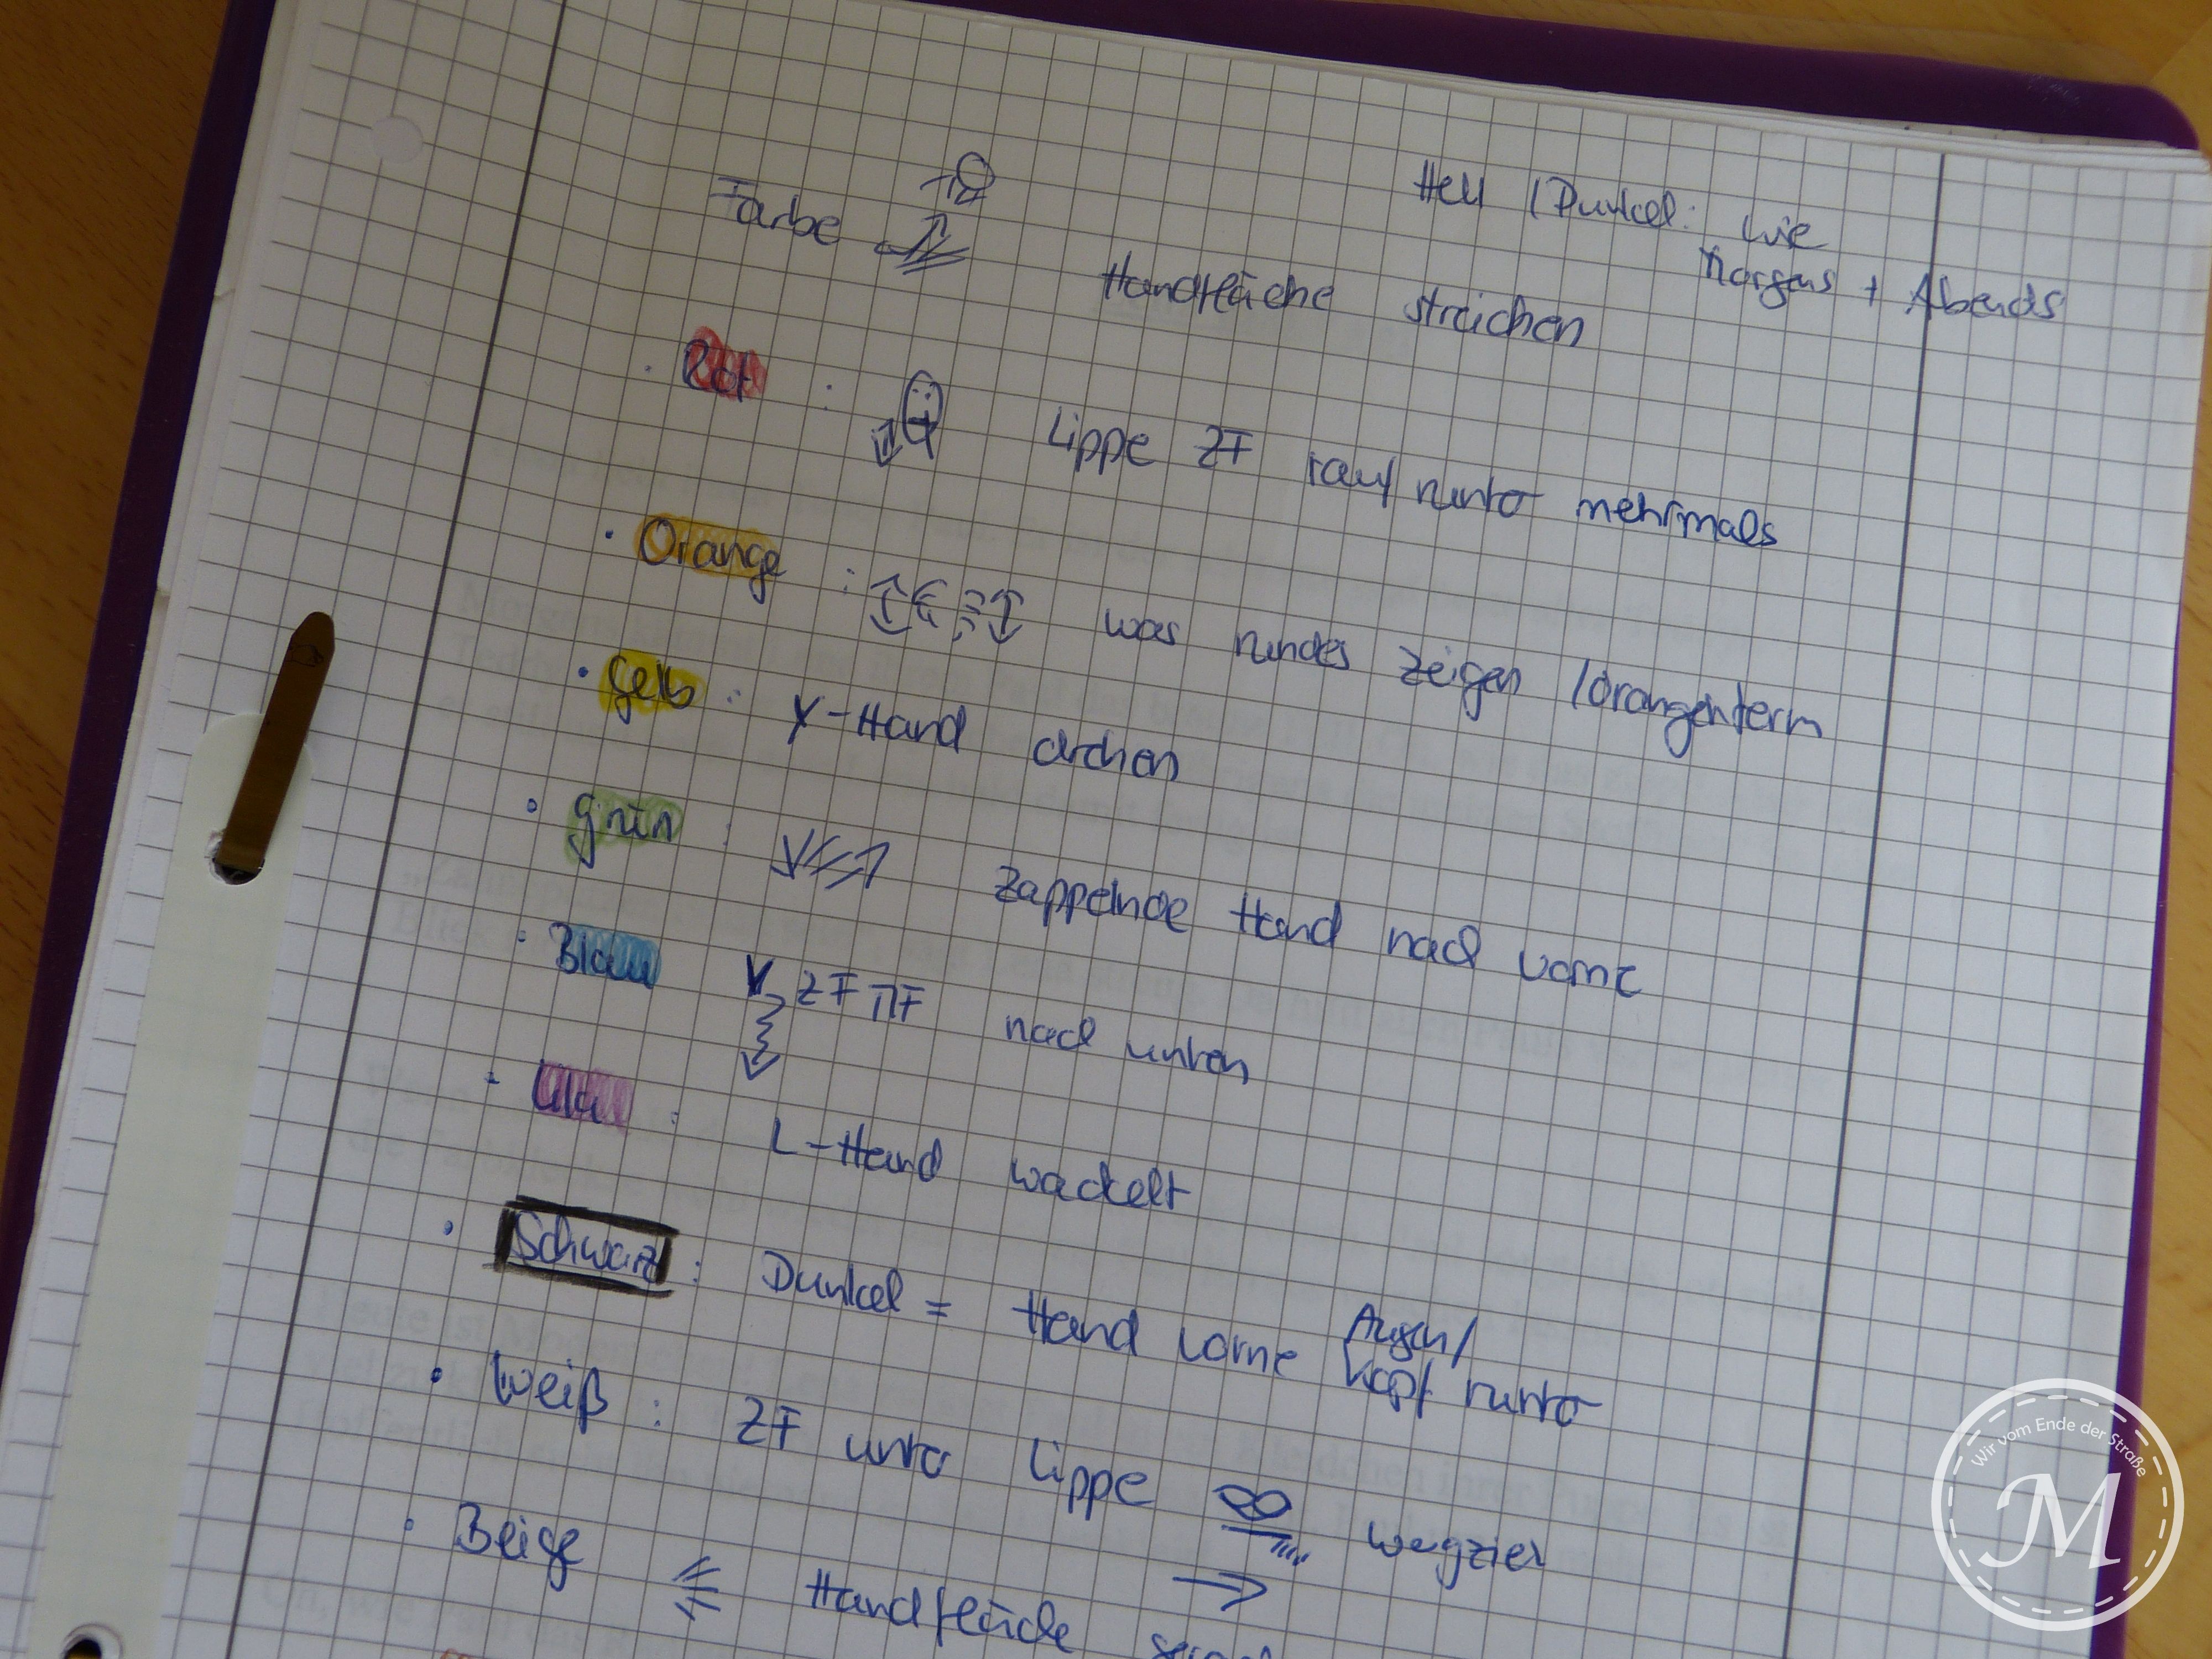 Farbe
Hell / Dunkel: wie
Morgens + Abends
Handfläche streichen
Rot : Lippe ZF rauf runter mehrmals
Orange : was rundes zeigen /
Gelb : Y-Hand drehen
Grün : Zappelnde Hand nach vorne
Blau ZF MF nach unten
Lila : L-Hand wackelt
Schwarz : Dunkel = Hand vorne Augen/
Kopf runter
Weiß : ZF unter Lippe
Beige Handfläche
Wir vom Ende der Straße
M